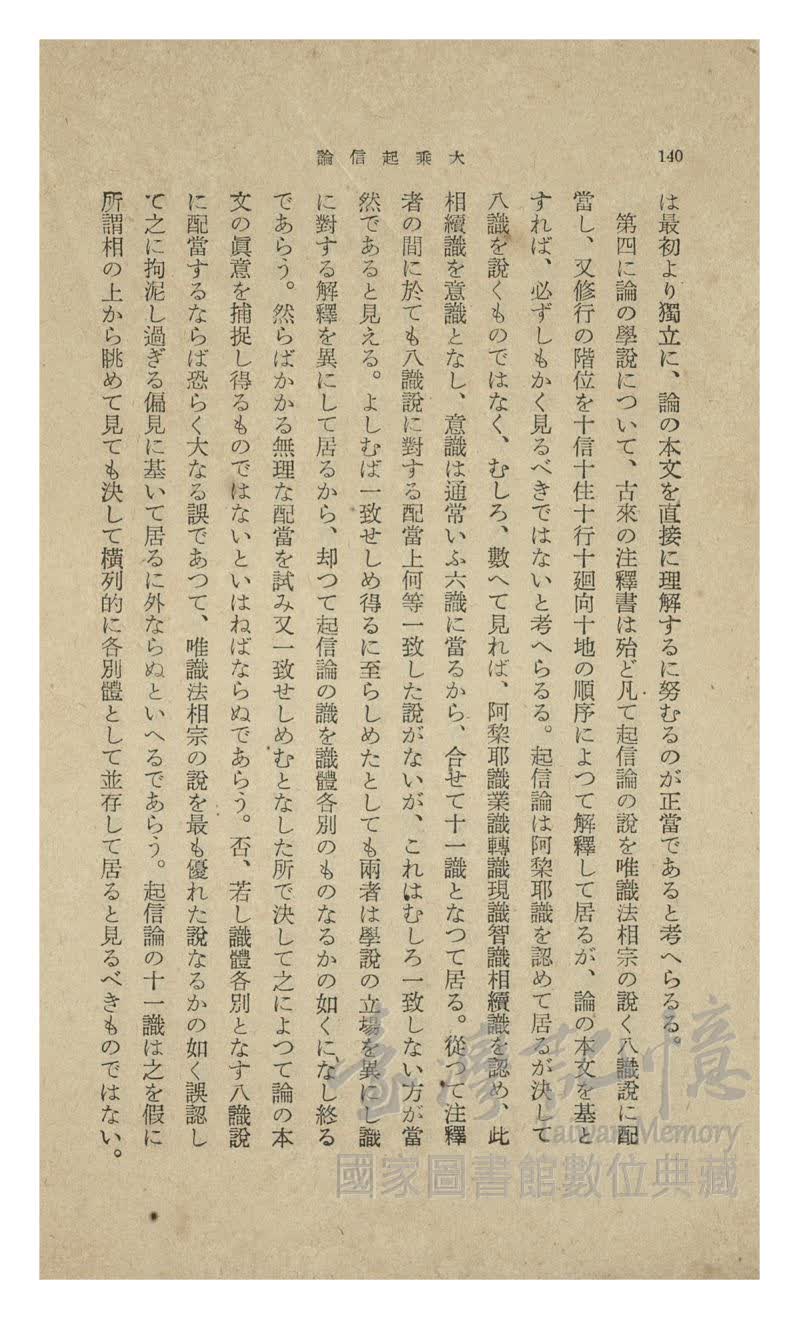 140
大乘起信論
は最初より獨立に、論の本文を直接に理解するに努むるのが正當であると考へらるる。
第四に論の學說について、古來の注釋書は殆ど凡て起信論の說を唯識法相宗の說く八識說に配
當し、又修行の階位を十信十住十行十廻向十地の順序によつて解釋して居るが、論の本文を基と
すれば、必ずしもかく見るべきではないと考へらるる。起信論は阿黎耶識を認めて居るが決して
八識を說くものではなく、むしろ、數へて見れば、阿黎耶識業識轉識現識智識相續識を認め、此
相續識を意識となし、意識は通常いふ六識に當るから、合せて十一識となつて居る。從つて注釋
者の間に於ても八識說に對する配當上何等一致した說がないが、これはむしろ一致しない方が當
然であると見える。よしむば一致せしめ得るに至らしめたとしても兩者は學說の立場を異にし識
に對する解釋を異にして居るから、却つて起信論の識を識體各別のものなるかの如くになし終る
であらう。然らばかかる無理な配當を試み又一致せしめむとなした所で決して之によつて論の本
文の眞意を捕捉し得るものではないといはねばならぬであらう。否、若し識體各別となす八識說
に配當するならば恐らく大なる誤であつて、唯識法相宗の說を最も優れた說なるかの如く誤認し
て之に拘泥し過ぎる偏見に基いて居るに外ならぬといへるであらう。起信論の十一識は之を假に
所謂相の上から眺めて見ても決して橫列的に各別體として並存して居ると見るべきものではない。
臺灣記憶
Taiwan Memory
國家圖書館數位典藏